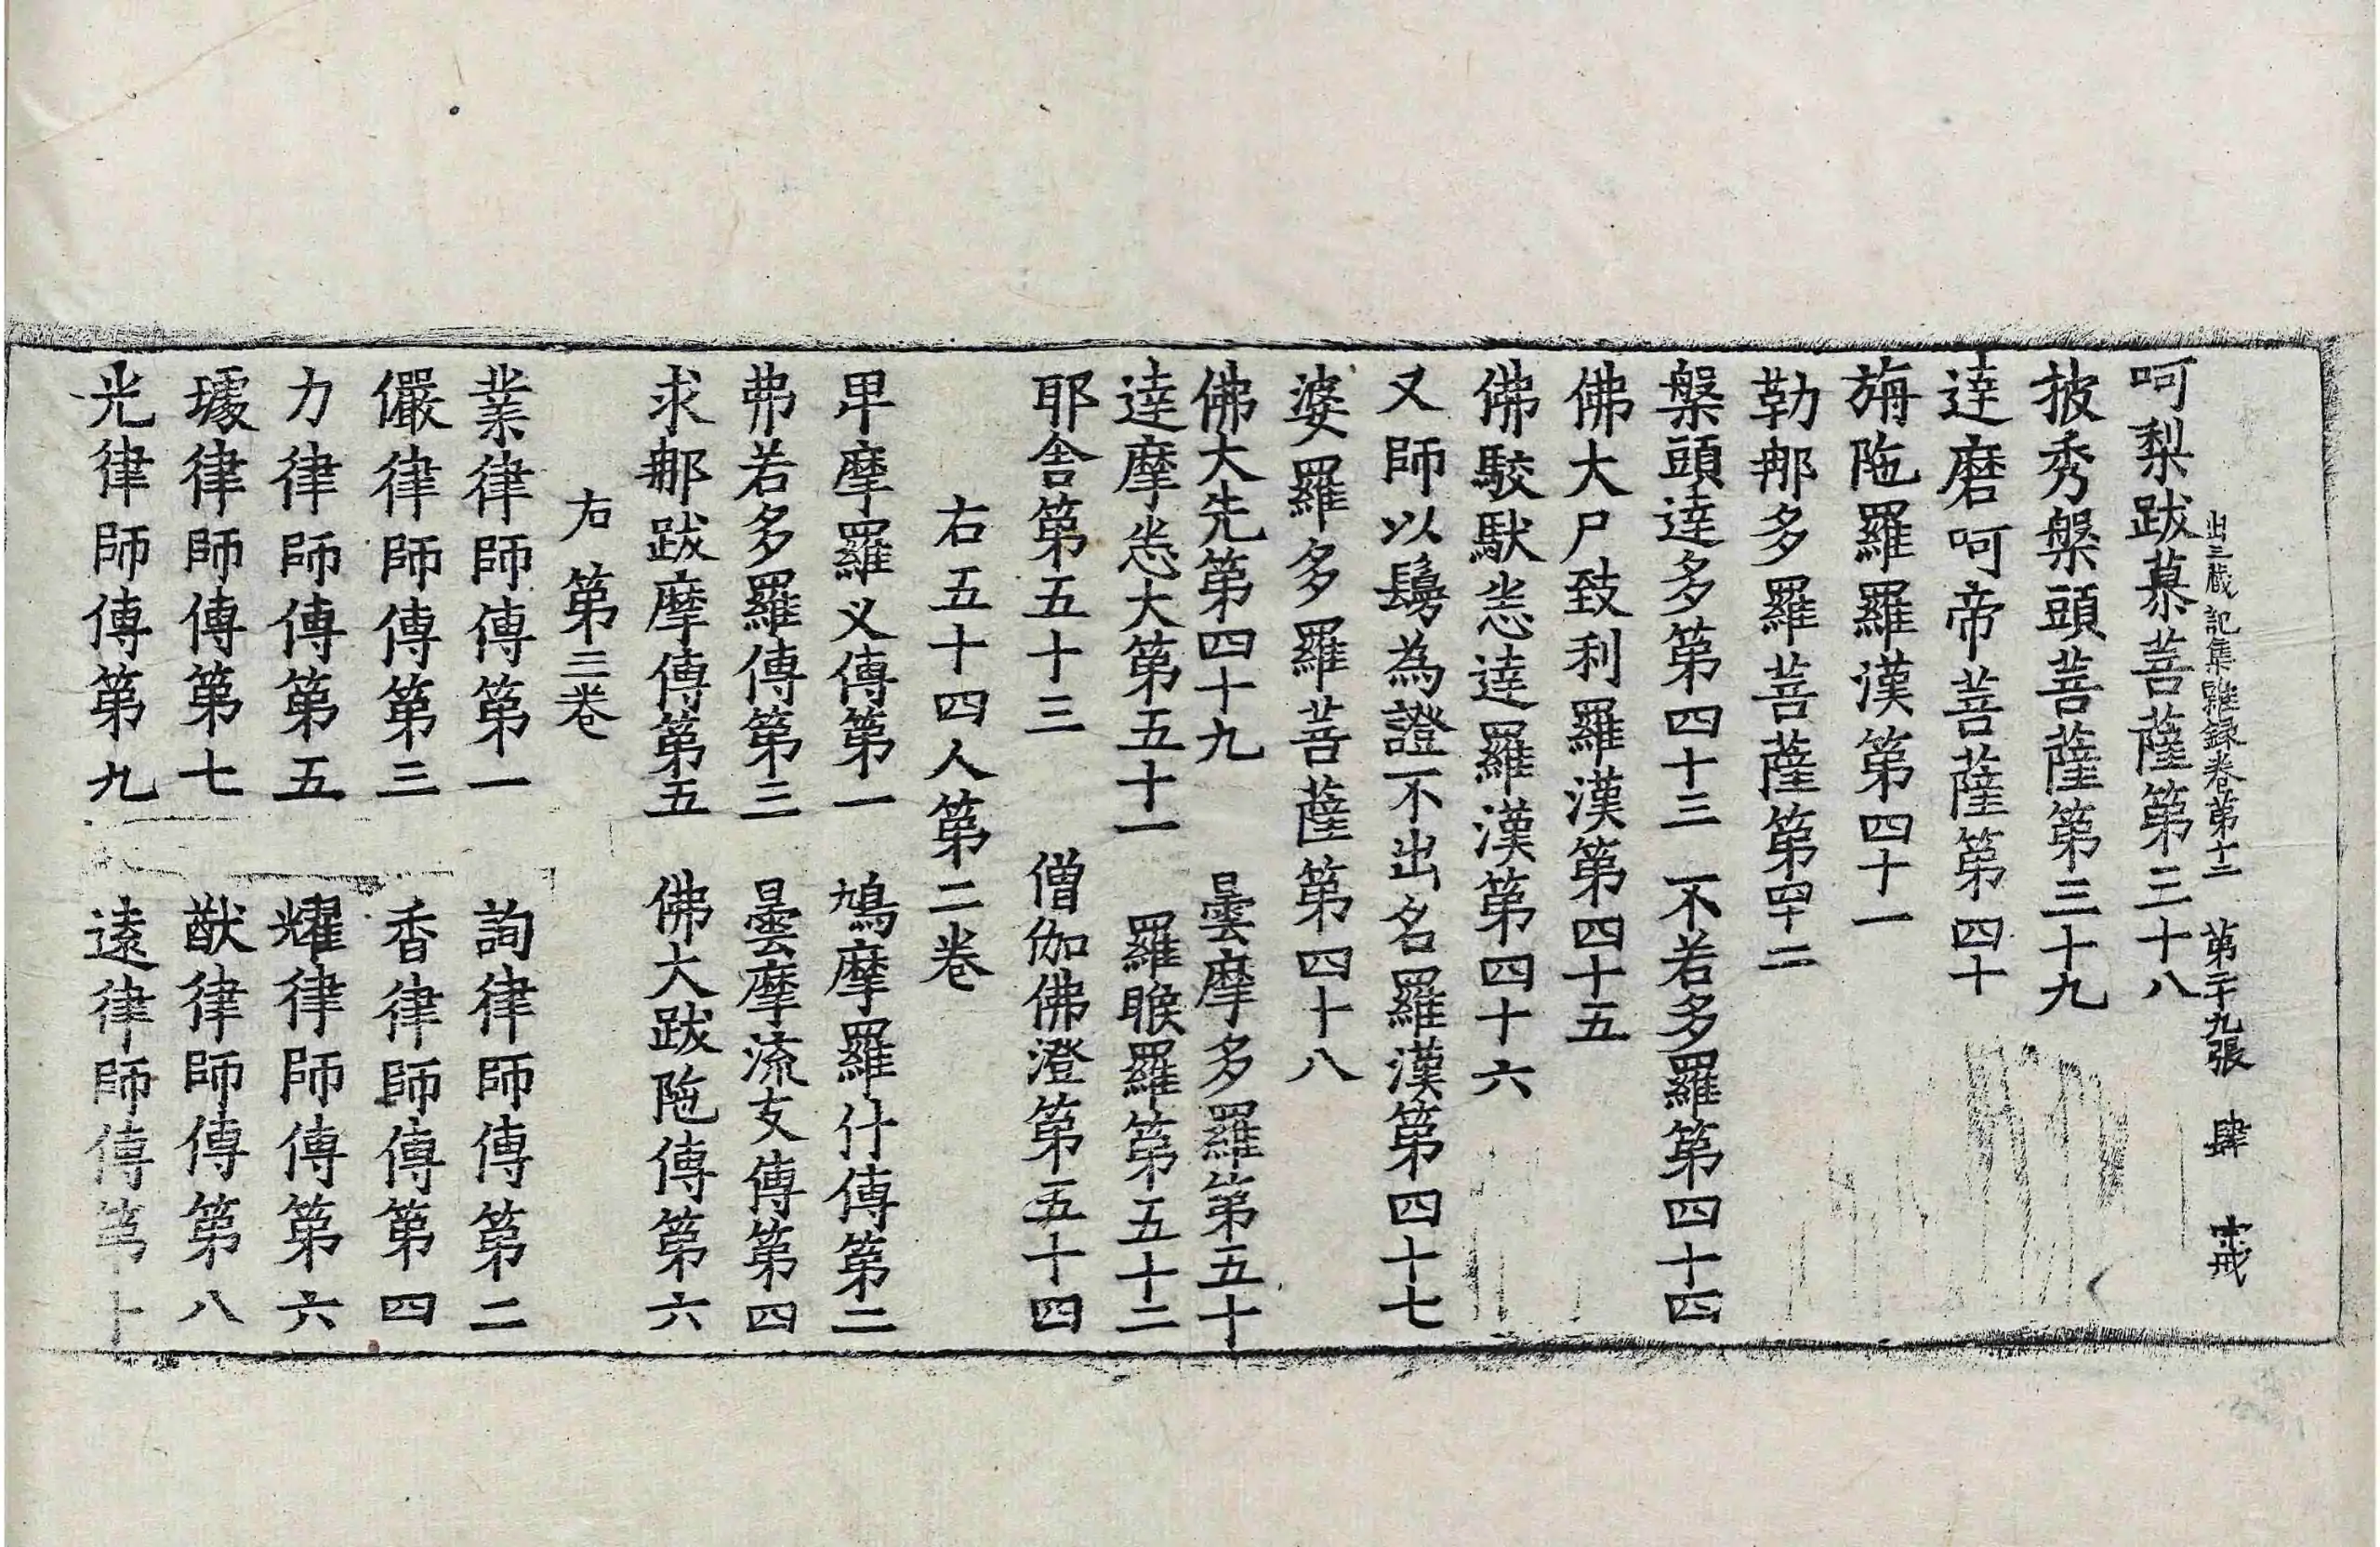 出三藏記集雜録卷第十二　第二十九張　肆　戒
呵梨跋慕菩薩第三十八
披秀槃頭菩薩第三十九
達磨呵帝菩薩第四十
旃陁羅羅漢第四十一
勒那多羅菩薩第四十二
槃頭達多第四十三　不若多羅第四十四
佛大尸致利羅漢第四十五
佛駮馱悉達羅漢第四十六
又師以鬚為證不出名羅漢第四十七
婆羅多羅菩薩第四十八
佛大先第四十九　曇摩多羅第五十
達摩悉大第五十一　羅睺羅第五十二
耶舍第五十三　僧伽佛澄第五十四
右五十四人第二卷
卑摩羅义傳第一　鳩摩羅什傳第二
弗若多羅傳第三　曇摩流支傳第四
求那跋摩傳第五　佛大跋陁傳第六
右第三卷
業律師傳第一　詢律師傳第二
儼律師傳第三　香律師傳第四
力律師傳第五　耀律師傳第六
璩律師傳第七　猷律師傳第八
光律師傳第九　遠律師傳第十